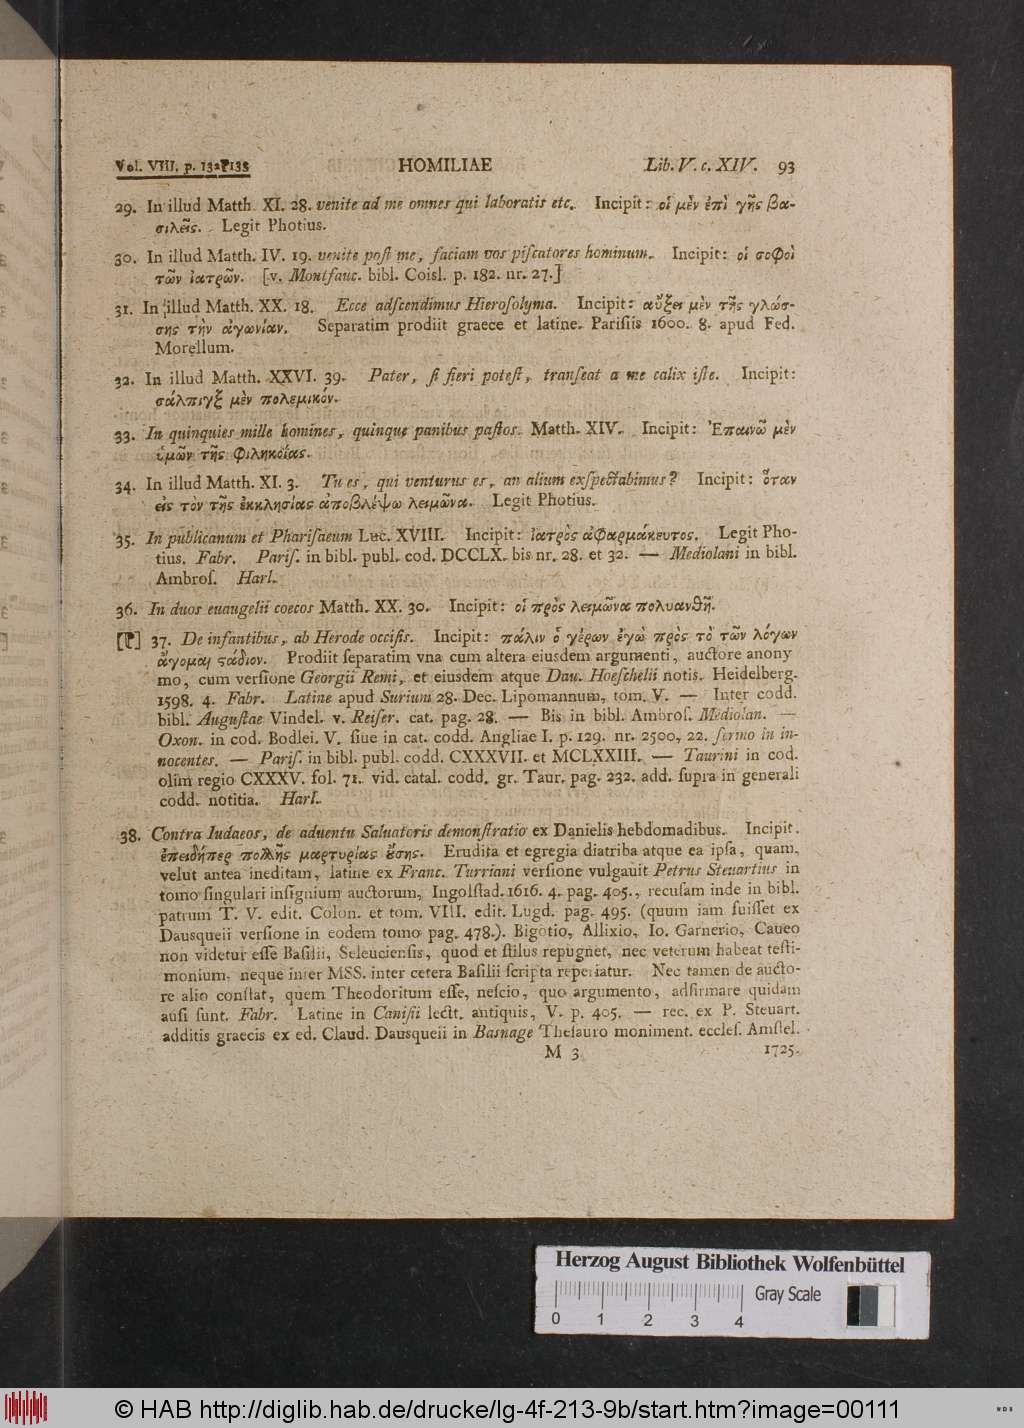 Vol. VIII. p. 132 133 HOMILIAE Lib. V. c. XIV. 93
29. In illud Matth. XI. 28. venite ad me omnes qui laboratis etc. Incipit: οἱ μὲν ἐπὶ γῆς βα-
σιλεῖς. Legit Photius.
30. In illud Matth. IV. 19. venite poſt me, faciam vos piſcatores hominum. Incipit: οἱ σοφοὶ
τῶν ἰατρῶν. [v. Montfauc. bibl. Coisl. p. 182. nr. 27.]
31. In illud Matth. XX. 18. Ecce adſcendimus Hieroſolyma. Incipit: αὔξει μὲν τῆς γλώσ-
σης τὴν ἀγωνίαν. Separatim prodiit graece et latine. Pariſiis 1600. 8. apud Fed.
Morellum.
32. In illud Matth. XXVI. 39. Pater, ſi fieri poteſt, tranſeat a me calix iſte. Incipit:
σάλπιγξ μὲν πολεμικόν.
33. In quinquies mille homines, quinque panibus paſtos. Matth. XIV. Incipit: Ἐπαινῶ μὲν
ὑμῶν τῆς φιληκοΐας.
34. In illud Matth. XI. 3. Tu es, qui venturus es, an alium exſpectabimus? Incipit: ὅταν
εἰς τὸν τῆς ἐκκλησίας ἀποβλέψω λειμῶνα. Legit Photius.
35. In publicanum et Phariſaeum Luc. XVIII. Incipit: ἰατρὸς ἀφαρμάκευτος. Legit Pho-
tius. Fabr. Pariſ. in bibl. publ. cod. DCCLX. bis nr. 28. et 32. — Mediolani in bibl.
Ambroſ. Harl.
36. In duos euangelii coecos Matth. XX. 30. Incipit: οἱ πρὸς λειμῶνα πολυανθῆ.
37. De infantibus, ab Herode occiſis. Incipit: πάλιν ὁ γέρων ἐγὼ πρὸς τὸ τῶν λόγων
ἄγομαι στάδιον. Prodiit ſeparatim vna cum altera eiusdem argumenti, auctore anony
mo, cum verſione Georgii Remi, et eiusdem atque Dau. Hoeſchelii notis. Heidelberg.
1598. 4. Fabr. Latine apud Surium 28. Dec. Lipomannum, tom. V. — Inter codd.
bibl. Auguſtae Vindel. v. Reiſer. cat. pag. 28. — Bis in bibl. Ambroſ. Mediolan. —
Oxon. in cod. Bodlei. V. ſiue in cat. codd. Angliae I. p. 129. nr. 2500, 22. ſermo in in-
nocentes. — Pariſ. in bibl. publ. codd. CXXXVII. et MCLXXIII. — Taurini in cod.
olim regio CXXXV. fol. 71. vid. catal. codd. gr. Taur. pag. 232. add. ſupra in generali
codd. notitia. Harl.
38. Contra Iudaeos, de aduentu Saluatoris demonſtratio ex Danielis hebdomadibus. Incipit.
ἐπειδήπερ πολλῆς μαρτυρίας ȣ̓́σης. Erudita et egregia diatriba atque ea ipſa, quam,
velut antea ineditam, latine ex Franc. Turriani verſione vulgauit Petrus Steuartius in
tomo ſingulari inſignium auctorum, Ingolſtad. 1616. 4. pag. 405., recuſam inde in bibl.
patrum T. V. edit. Colon. et tom. VIII. edit. Lugd. pag. 495. (quum iam fuiſſet ex
Dausqueii verſione in eodem tomo pag. 478.). Bigotio, Allixio, Io. Garnerio, Caueo
non videtur eſſe Baſilii, Seleucienſis, quod et ſtilus repugnet, nec veterum habeat teſti-
monium, neque inter MSS. inter cetera Baſilii ſcripta reperiatur. Nec tamen de aucto-
re alio conſtat, quem Theodoritum eſſe, neſcio, quo argumento, adfirmare quidam
auſi ſunt. Fabr. Latine in Caniſii lectt. antiquis, V. p. 405. — rec. ex P. Steuart.
additis graecis ex ed. Claud. Dausqueii in Basnage Theſauro moniment. eccleſ. Amſtel.
M 3 1725.
Herzog August Bibliothek Wolfenbüttel
0 1 2 3 4 Gray Scale
© HAB http://diglib.hab.de/drucke/lg-4f-213-9b/start.htm?image=00111